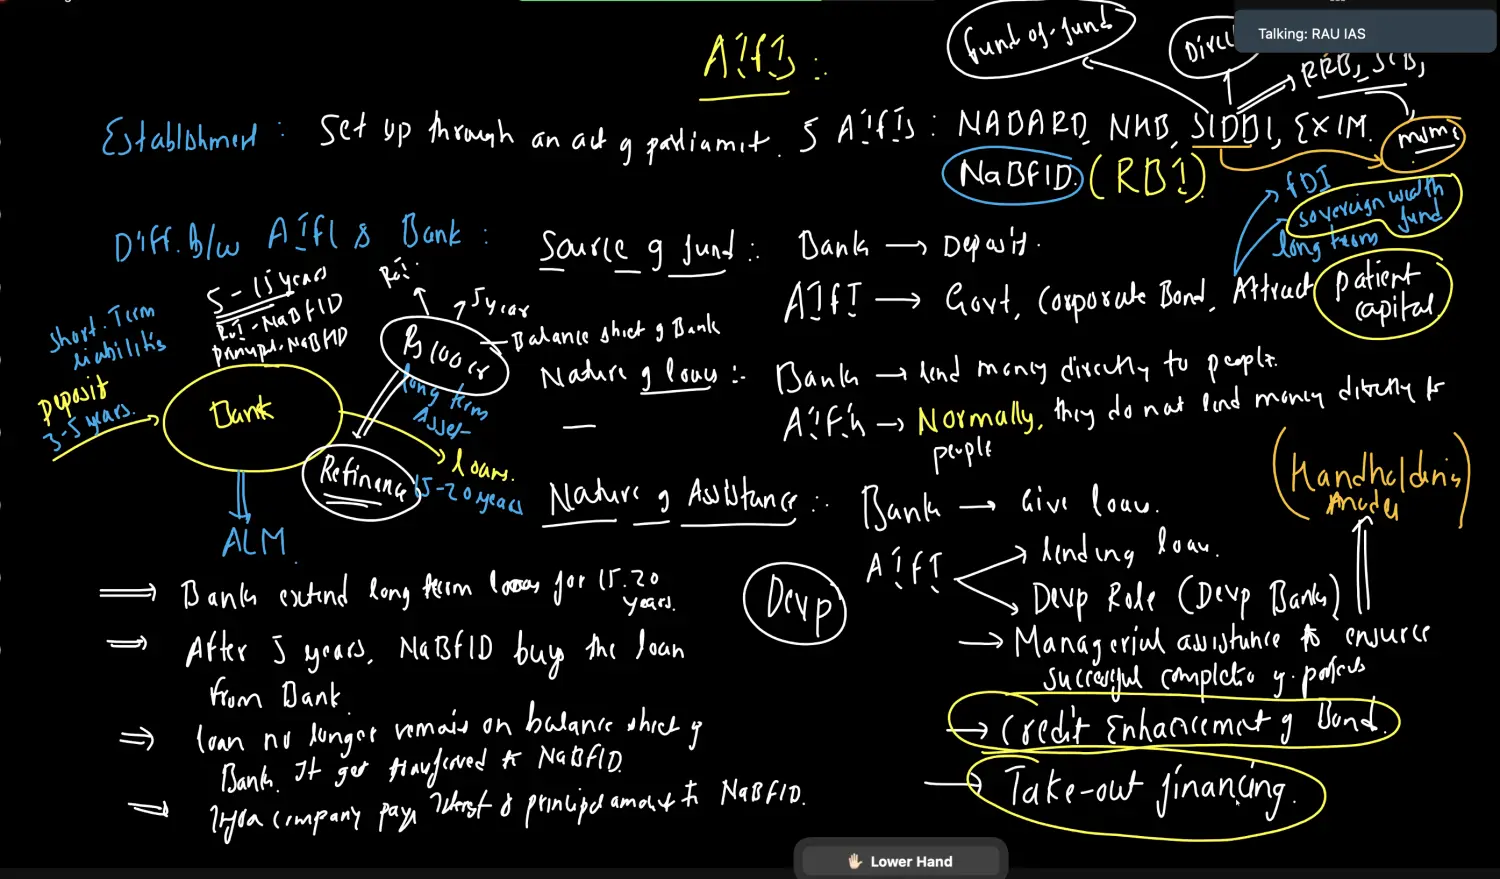 Talking: RAU IAS
AIFIs :
fund of fund
RRB, SCB,
Establishment : Set up through an act of parliament. 5 AIFIs : NABARD, NHB, SIDBI, EXIM.
MSME
NaBFID. (RBI)
FDI
sovereign wealth
fund
long term
Diff. B/w AIFI & Bank :
Source of fund :. Bank → Deposit.
AIFI → Govt, Corporate Bond, Attract
patient
capital.
5-15 years
RoI - NaBFID
principal - NaBFID
RoI.
5 year
Rs 100 cr
Balance sheet of Bank
long term
Asset
Short. Term
liabilities
Deposit
3-5 years.
Bank
loans.
15-20 years
Refinance
ALM
Nature of loans :- Bank → lend money directly to people.
AIFIs → Normally, they do not lend money directly to
people
Nature of Assistance :. Bank → Give loan.
AIFI
lending loan.
Devp Role (Devp Banks)
Handholding
Devp
→ Managerial assistance to ensure
successful completion of projects
→ Credit Enhancement of Bond.
→ Take-out financing.
⇒ Banks extend long term loans for 15-20
years.
⇒ After 5 years, NaBFID buy the loan
from Bank.
⇒ loan no longer remain on balance sheet of
Bank. It get transferred to NaBFID.
⇒ Infra company pays interest & principal amount to NaBFID.
Lower Hand